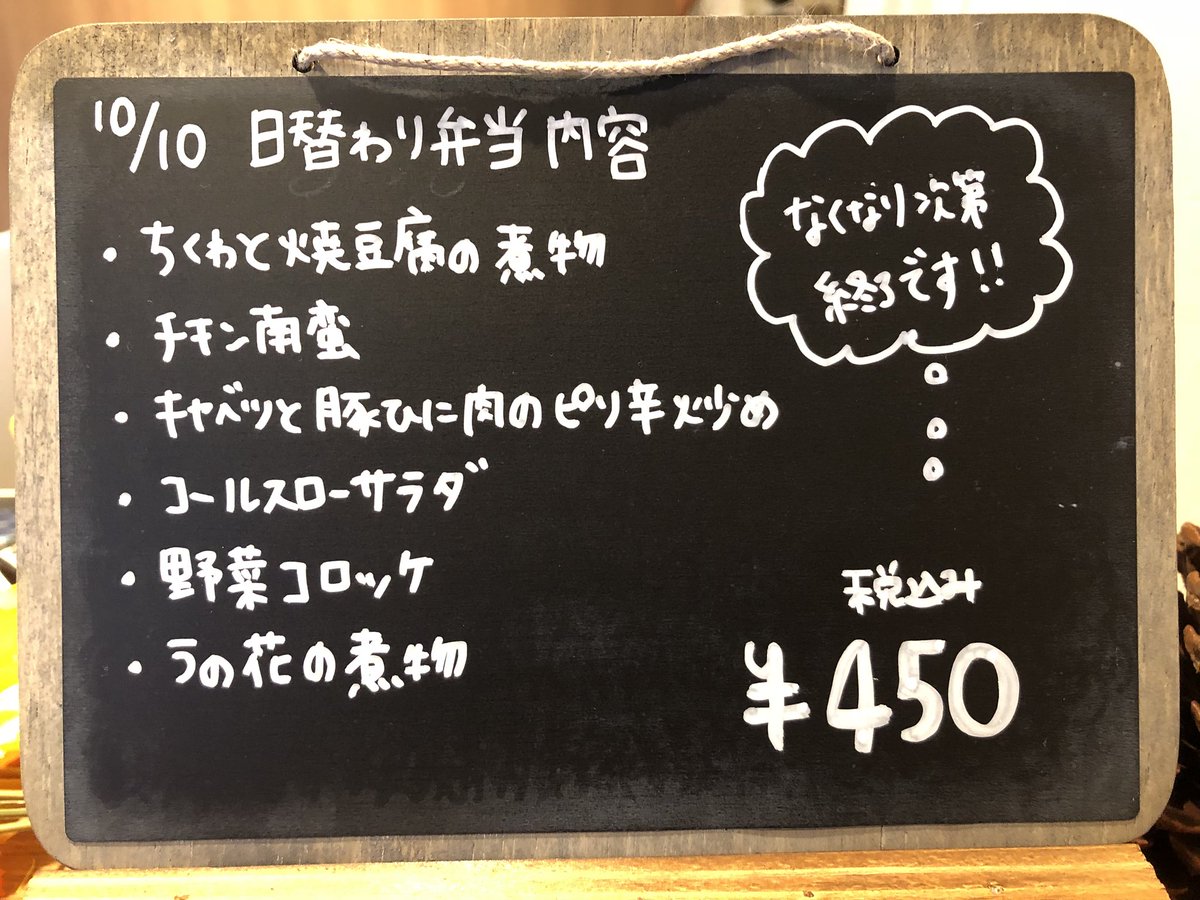 10/10 日替わり弁当内容
・ちくわと焼豆腐の煮物
・チキン南蛮
・キャベツと豚ひに肉のピリ辛炒め
・コールスローサラダ
・野菜コロッケ
・うの花の煮物
なくなり次第
終了です!!
税込み
¥450